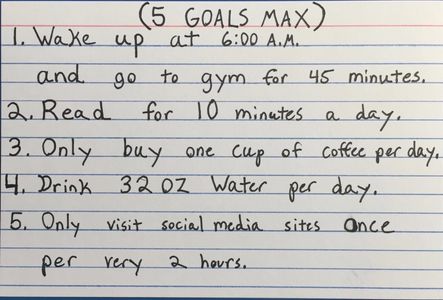 (5 GOALS MAX)
1. Wake up at 6:00 A.M.
and go to gym for 45 minutes.
2. Read for 10 minutes a day.
3. Only buy one cup of coffee per day.
4. Drink 32 OZ Water per day.
5. Only visit social media sites once
per very 2 hours.